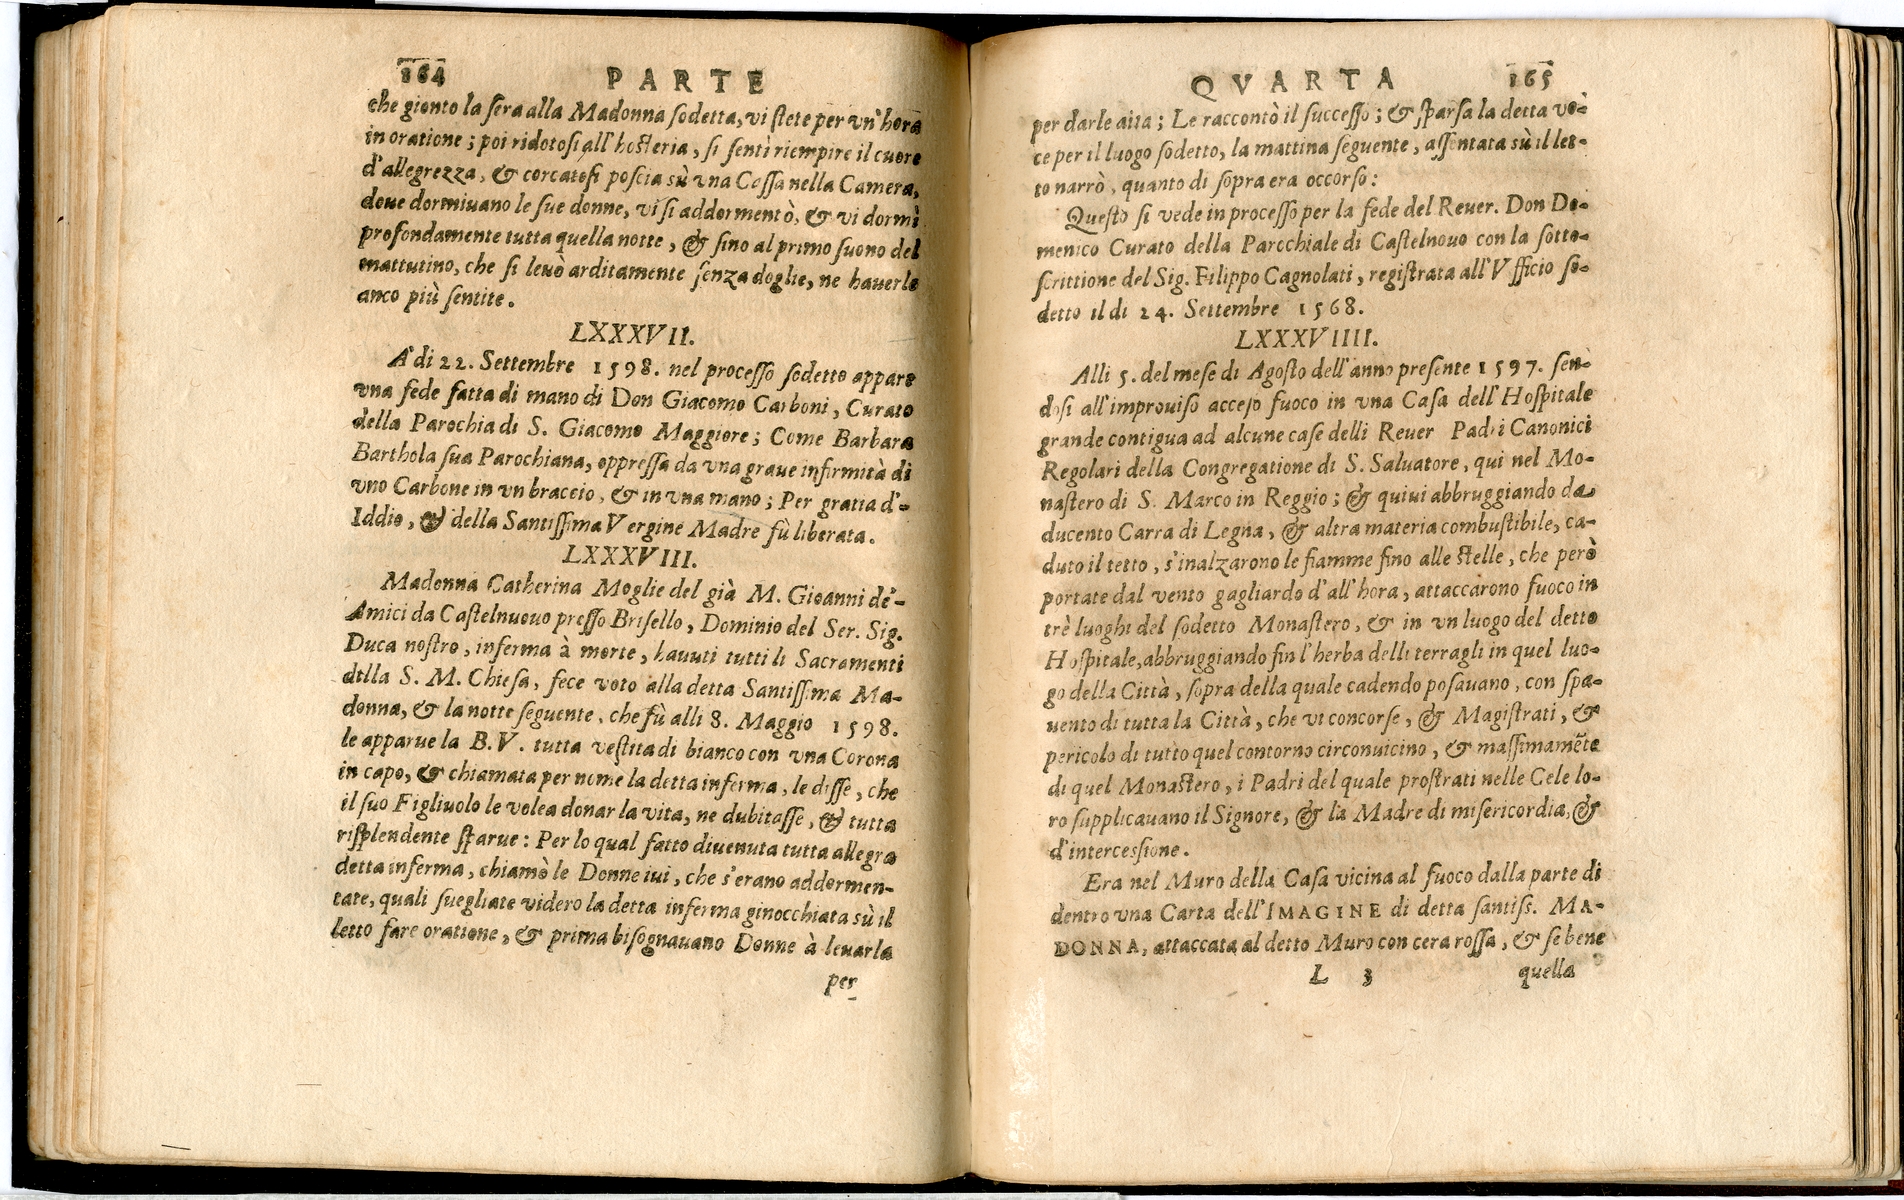 164 PARTE
che gionto la sera alla Madonna sodetta, vi stete per vn'hora
in oratione; poi ridotosi all'hosteria, si sentì riempire il cuore
d'allegrezza, & corcatosi poscia sù vna Cassa nella Camera,
doue dormiuano le sue donne, vi si addormentò, & vi dormì
profondamente tutta quella notte, & sino al primo suono del
mattutino, che si leuò arditamente senza doglie, ne hauerle
anco più sentite.
LXXXVII.
A' di 22. Settembre 1598. nel processo sodetto appare
vna fede fatta di mano di Don Giacomo Carboni, Curato
della Parochia di S. Giacomo Maggiore; Come Barbara
Barthola sua Parochiana, oppressa da vna graue infirmità di
vno Carbone in vn braccio, & in vna mano; Per gratia d'-
Iddio, & della Santissima Vergine Madre fù liberata.
LXXXVIII.
Madonna Catherina Moglie del già M. Gioanni de'-
Amici da Castelnuouo presso Brisello, Dominio del Ser. Sig.
Duca nostro, inferma à morte, hauuti tutti li Sacramenti
della S. M. Chiesa, fece voto alla detta Santissima Ma-
donna, & la notte seguente, che fù alli 8. Maggio 1598.
le apparue la B.V. tutta vestita di bianco con vna Corona
in capo, & chiamata per nome la detta inferma, le disse, che
il suo Figliuolo le volea donar la vita, ne dubitasse, & tutta
risplendente sparue: Per lo qual fatto diuenuta tutta allegra
detta inferma, chiamò le Donne iui, che s'erano addormen-
tate, quali suegliate videro la detta inferma ginocchiata sù il
letto fare oratione, & prima bisognauano Donne à leuarla
per
QVARTA 165
per darle aita; Le raccontò il successo; & sparsa la detta vo-
ce per il luogo sodetto, la mattina seguente, assentata sù il let-
to narrò, quanto di sopra era occorso:
Questo si vede in processo per la fede del Reuer. Don Do-
menico Curato della Parochiale di Castelnouo con la sotto-
scrittione del Sig. Filippo Cagnolati, registrata all'Vfficio so-
detto il di 24. Settembre 1568.
LXXXVIIII.
Alli 5. del mese di Agosto dell'anno presente 1597. sen-
dosi all'improuiso acceso fuoco in vna Casa dell'Hospitale
grande contigua ad alcune case delli Reuer Padri Canonici
Regolari della Congregatione di S. Saluatore, qui nel Mo-
nastero di S. Marco in Reggio; & quiui abbruggiando da
ducento Carra di Legna, & altra materia combustibile, ca-
duto il tetto, s'inalzarono le fiamme fino alle stelle, che però
portate dal vento gagliardo d'all'hora, attaccarono fuoco in
trè luoghi del sodetto Monastero, & in vn luogo del detto
Hospitale, abbruggiando fin l'herba delli terragli in quel luo-
go della Città, sopra della quale cadendo posauano, con spa-
uento di tutta la Città, che vi concorse, & Magistrati, &
pericolo di tutto quel contorno circonuicino, & massimamẽte
di quel Monastero, i Padri del quale prostrati nelle Cele lo-
ro supplicauano il Signore, & la Madre di misericordia, &
d'intercessione.
Era nel Muro della Casa vicina al fuoco dalla parte di
dentro vna Carta dell'IMAGINE di detta santiss. MA-
DONNA, attaccata al detto Muro con cera rossa, & se bene
L 3 quella